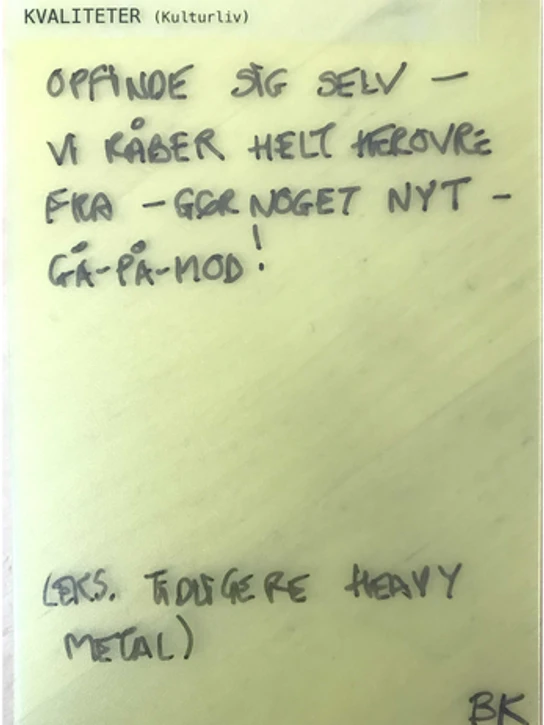 KVALITETER (Kulturliv)
OPFINDE SIG SELV —
VI RÅBER HELT HEROVRE
FRA – GØR NOGET NYT –
GÅ-PÅ-MOD!
(EKS. TIDLIGERE HEAVY
METAL)
BK